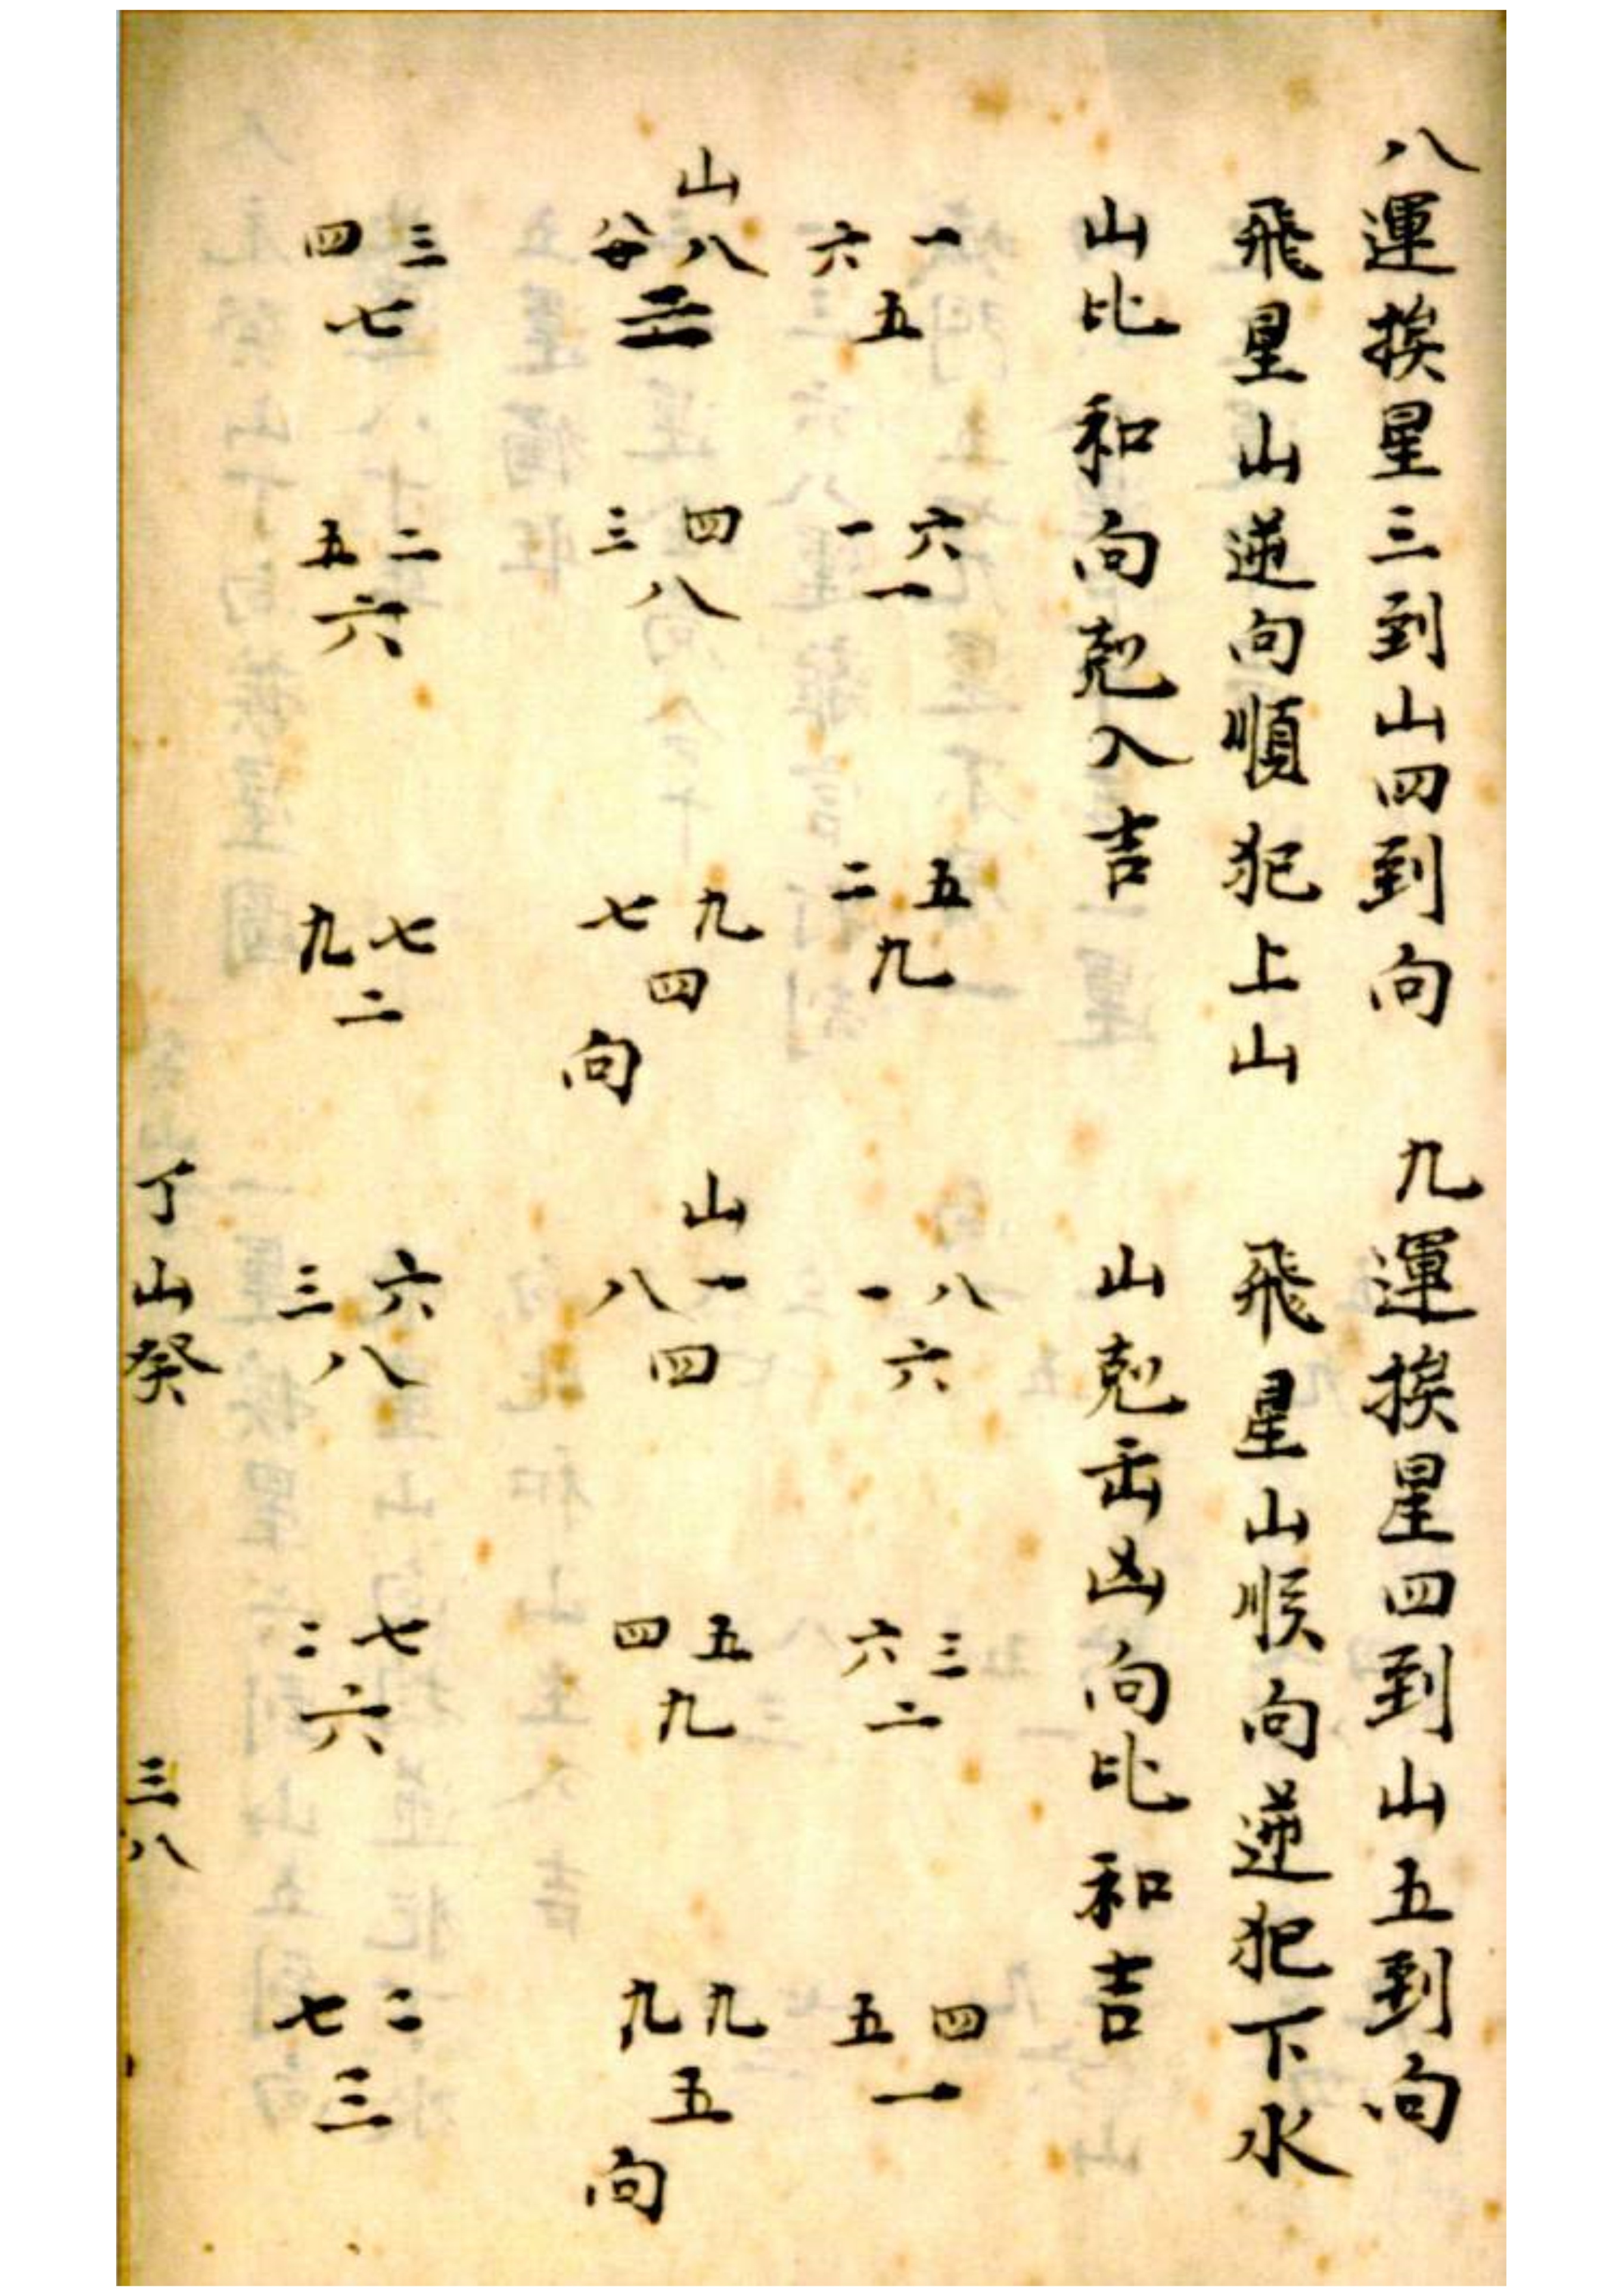 八運挨星三到山四到向
飛星山逆向順犯上山
山比和向尅入吉
六 一
五
一 六
一
二 五
九
山
八
三
三 四
八
七 九
四
向
四 三
七
五 二
六
九 七
二
九運挨星四到山五到向
飛星山順向逆犯下水
山尅出凶向比和吉
一 八
六
六 三
二
五 四
一
山
八 一
四
四 五
九
九 九
五
向
三 六
八
二 七
六
七 二
三
丁山癸
三八